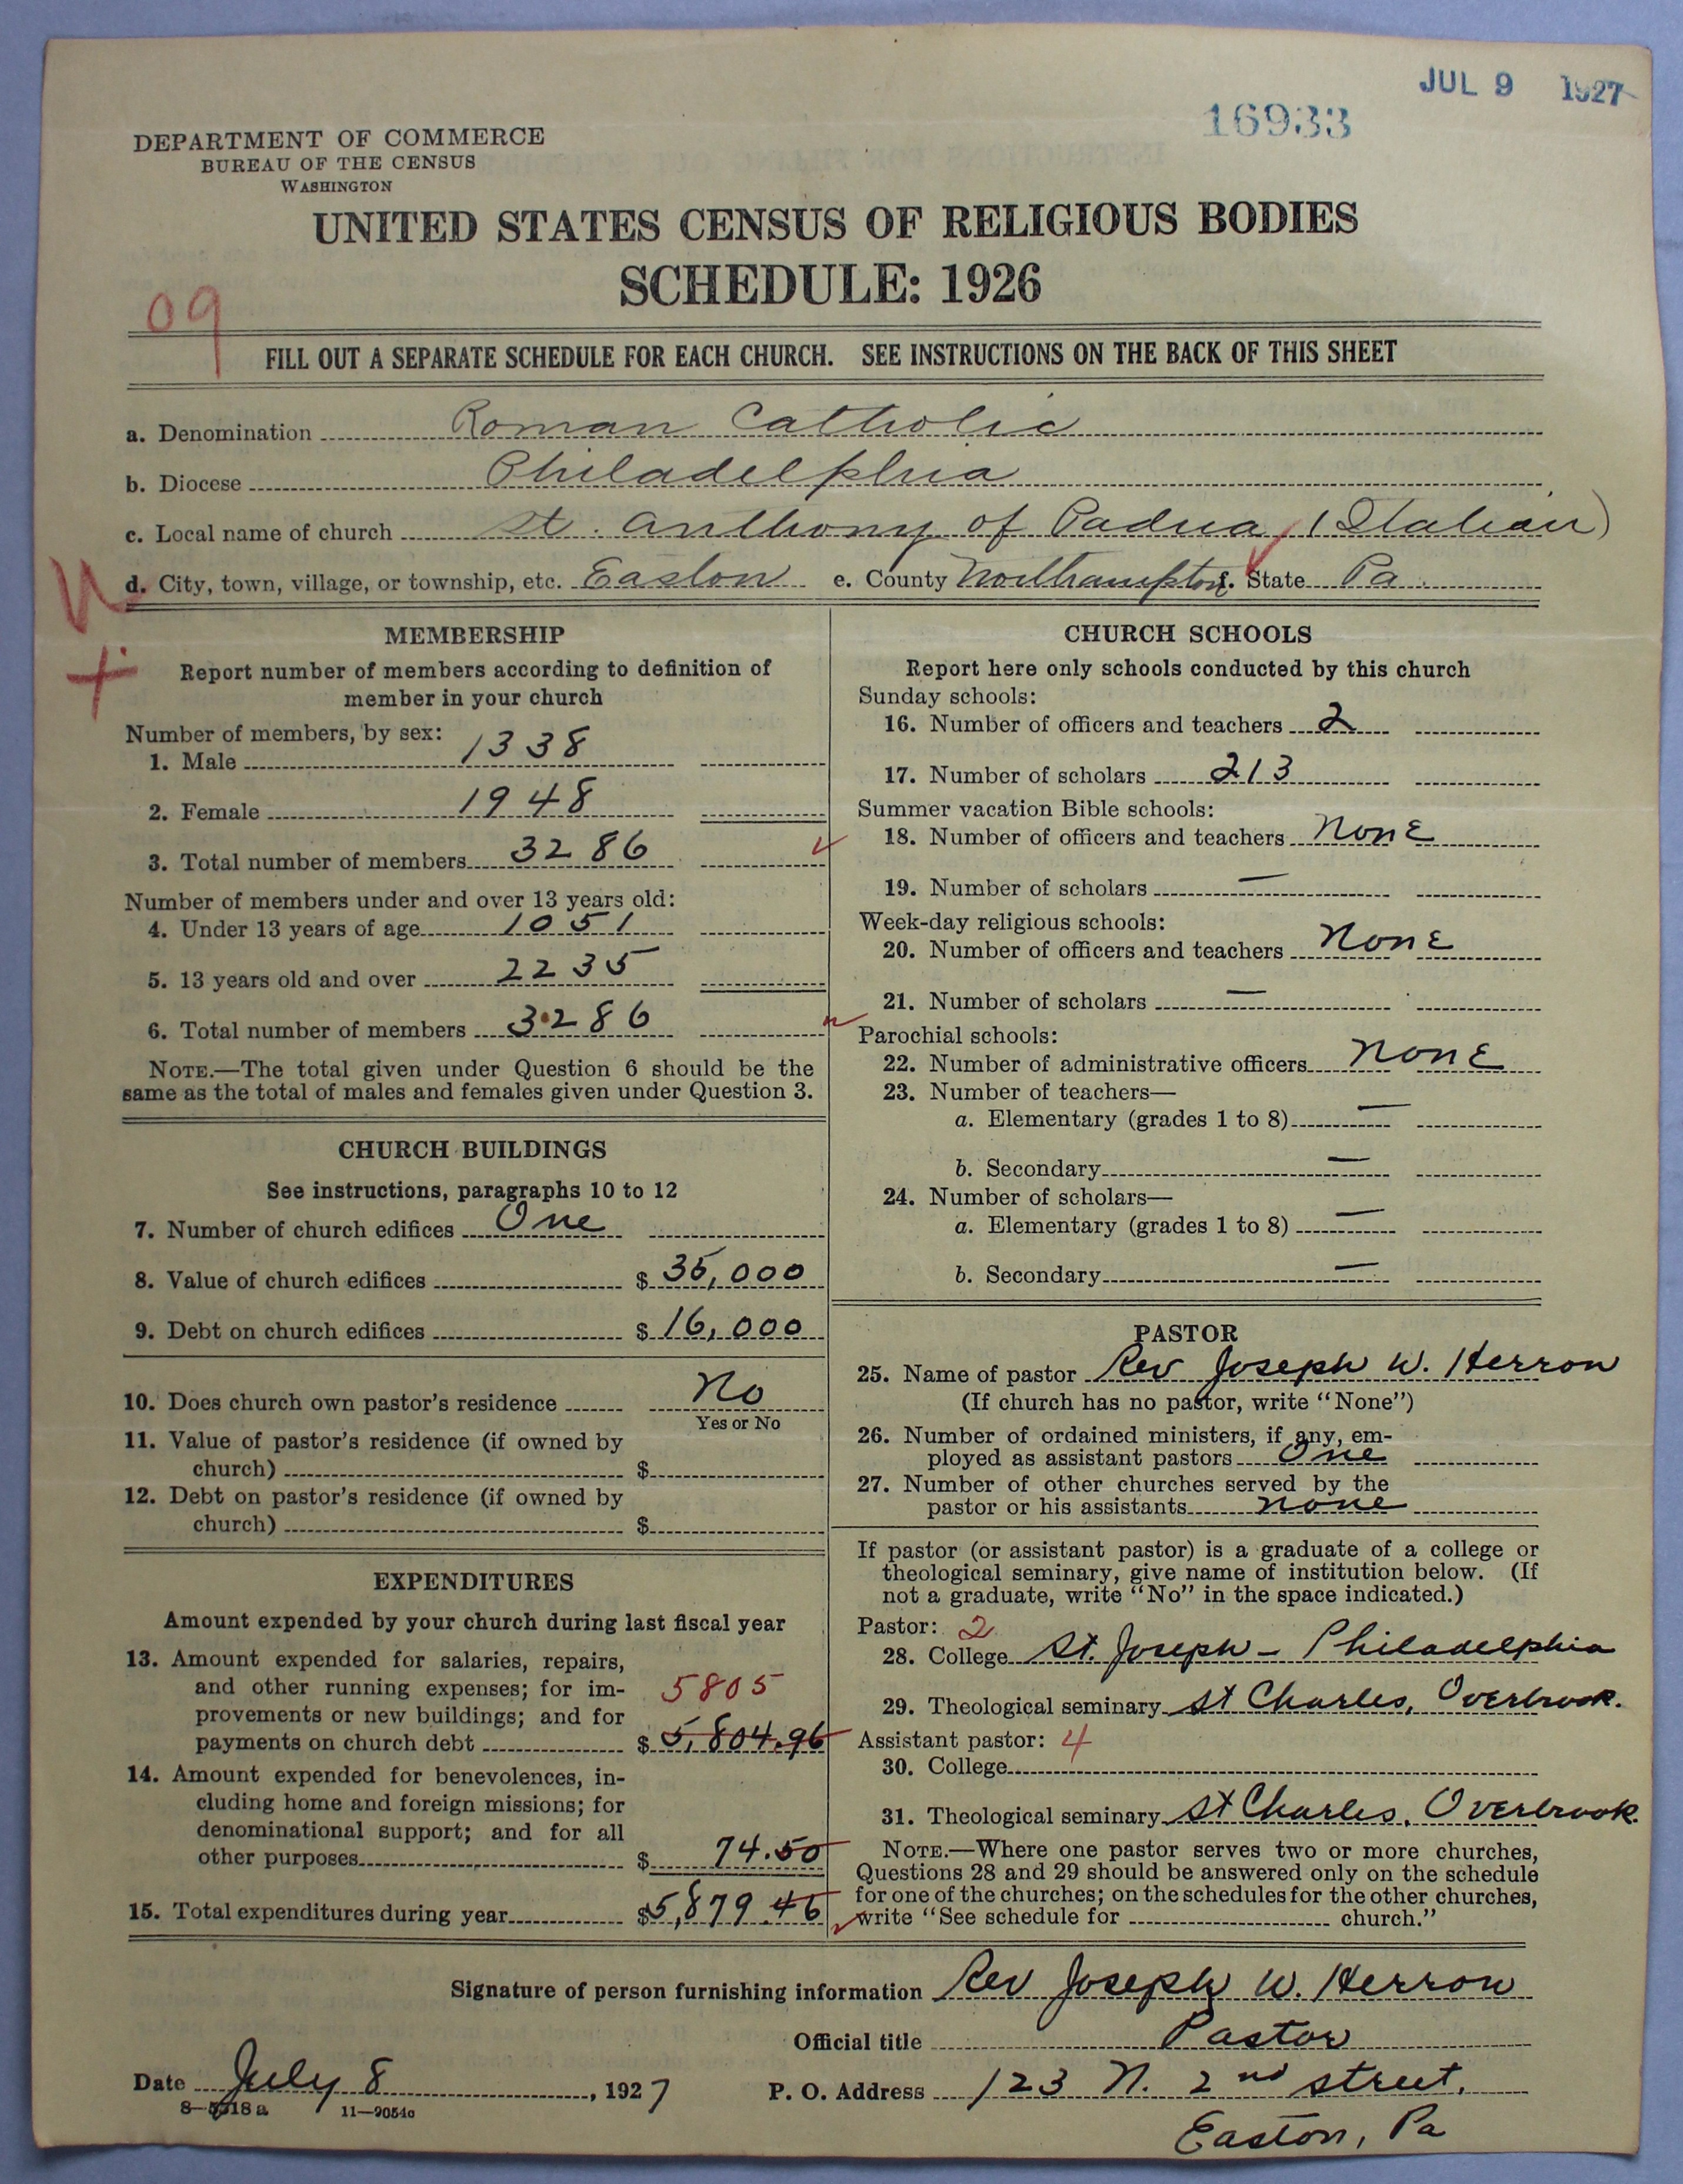 JUL 9 1927
16933
DEPARTMENT OF COMMERCE
BUREAU OF THE CENSUS
WASHINGTON
UNITED STATES CENSUS OF RELIGIOUS BODIES
SCHEDULE: 1926
09
FILL OUT A SEPARATE SCHEDULE FOR EACH CHURCH. SEE INSTRUCTIONS ON THE BACK OF THIS SHEET
a. Denomination Roman Catholic
b. Diocese Philadelphia
c. Local name of church St. Anthony of Padua (Italian)
d. City, town, village, or township, etc. Easton e. County Northampton f. State Pa.
MEMBERSHIP
Report number of members according to definition of
member in your church
Number of members, by sex:
1. Male 1338
2. Female 1948
3. Total number of members 3286
Number of members under and over 13 years old:
4. Under 13 years of age 1051
5. 13 years old and over 2235
6. Total number of members 3286
NOTE.—The total given under Question 6 should be the
same as the total of males and females given under Question 3.
CHURCH BUILDINGS
See instructions, paragraphs 10 to 12
7. Number of church edifices One
8. Value of church edifices $ 35,000
9. Debt on church edifices $ 16,000
10. Does church own pastor's residence No
Yes or No
11. Value of pastor's residence (if owned by
church) $
12. Debt on pastor's residence (if owned by
church) $
EXPENDITURES
Amount expended by your church during last fiscal year
13. Amount expended for salaries, repairs,
and other running expenses; for im- 5805
provements or new buildings; and for
payments on church debt $ 5,804.96
14. Amount expended for benevolences, in-
cluding home and foreign missions; for
denominational support; and for all
other purposes $ 74.50
15. Total expenditures during year $5,879.46
CHURCH SCHOOLS
Report here only schools conducted by this church
Sunday schools:
16. Number of officers and teachers 2
17. Number of scholars 213
Summer vacation Bible schools:
18. Number of officers and teachers None
19. Number of scholars —
Week-day religious schools:
20. Number of officers and teachers None
21. Number of scholars —
Parochial schools:
22. Number of administrative officers None
23. Number of teachers—
a. Elementary (grades 1 to 8) —
b. Secondary —
24. Number of scholars—
a. Elementary (grades 1 to 8) —
b. Secondary —
PASTOR
25. Name of pastor Rev Joseph W. Herron
(If church has no pastor, write "None")
26. Number of ordained ministers, if any, em-
ployed as assistant pastors One
27. Number of other churches served by the
pastor or his assistants none
If pastor (or assistant pastor) is a graduate of a college or
theological seminary, give name of institution below. (If
not a graduate, write "No" in the space indicated.)
Pastor: 2
28. College St. Joseph - Philadelphia
29. Theological seminary St Charles, Overbrook.
Assistant pastor: 4
30. College
31. Theological seminary St Charles, Overbrook.
NOTE.—Where one pastor serves two or more churches,
Questions 28 and 29 should be answered only on the schedule
for one of the churches; on the schedules for the other churches,
write "See schedule for church."
Signature of person furnishing information Rev Joseph W. Herron
Official title Pastor
Date July 8, 1927 P. O. Address 123 N. 2nd street,
8—5518a 11—9054c
Easton, Pa